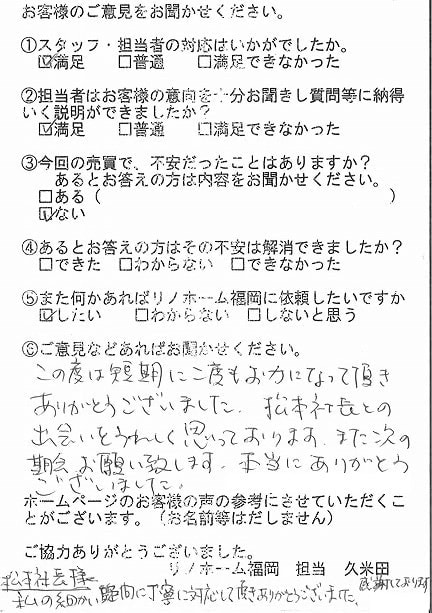 お客様のご意見をお聞かせください。
①スタッフ・担当者の対応はいかがでしたか。
☑満足 □普通 □満足できなかった
②担当者はお客様の意向を十分お聞きし質問等に納得
いく説明ができましたか？
☑満足 □普通 □満足できなかった
③今回の売買で、不安だったことはありますか？
あるとお答えの方は内容をお聞かせください。
□ある（ ）
☑ない
④あるとお答えの方はその不安は解消できましたか？
□できた □わからない □できなかった
⑤また何かあればリノホーム福岡に依頼したいですか
☑したい □わからない □しないと思う
⑥ご意見などあればお聞かせください。
この度は短期に二度もお力になって頂き
ありがとうございました。松本社長との
出会いをうれしく思っております。また次の
期会お願い致します。本当にありがとう
ございました。
ホームページのお客様の声の参考にさせていただくこ
とがございます。（お名前等はだしません）
ご協力ありがとうございました。
リノホーム福岡 担当 久米田
松本社長様
私の細かい質問に丁寧に対応して頂きありがとうございました。
感謝しております